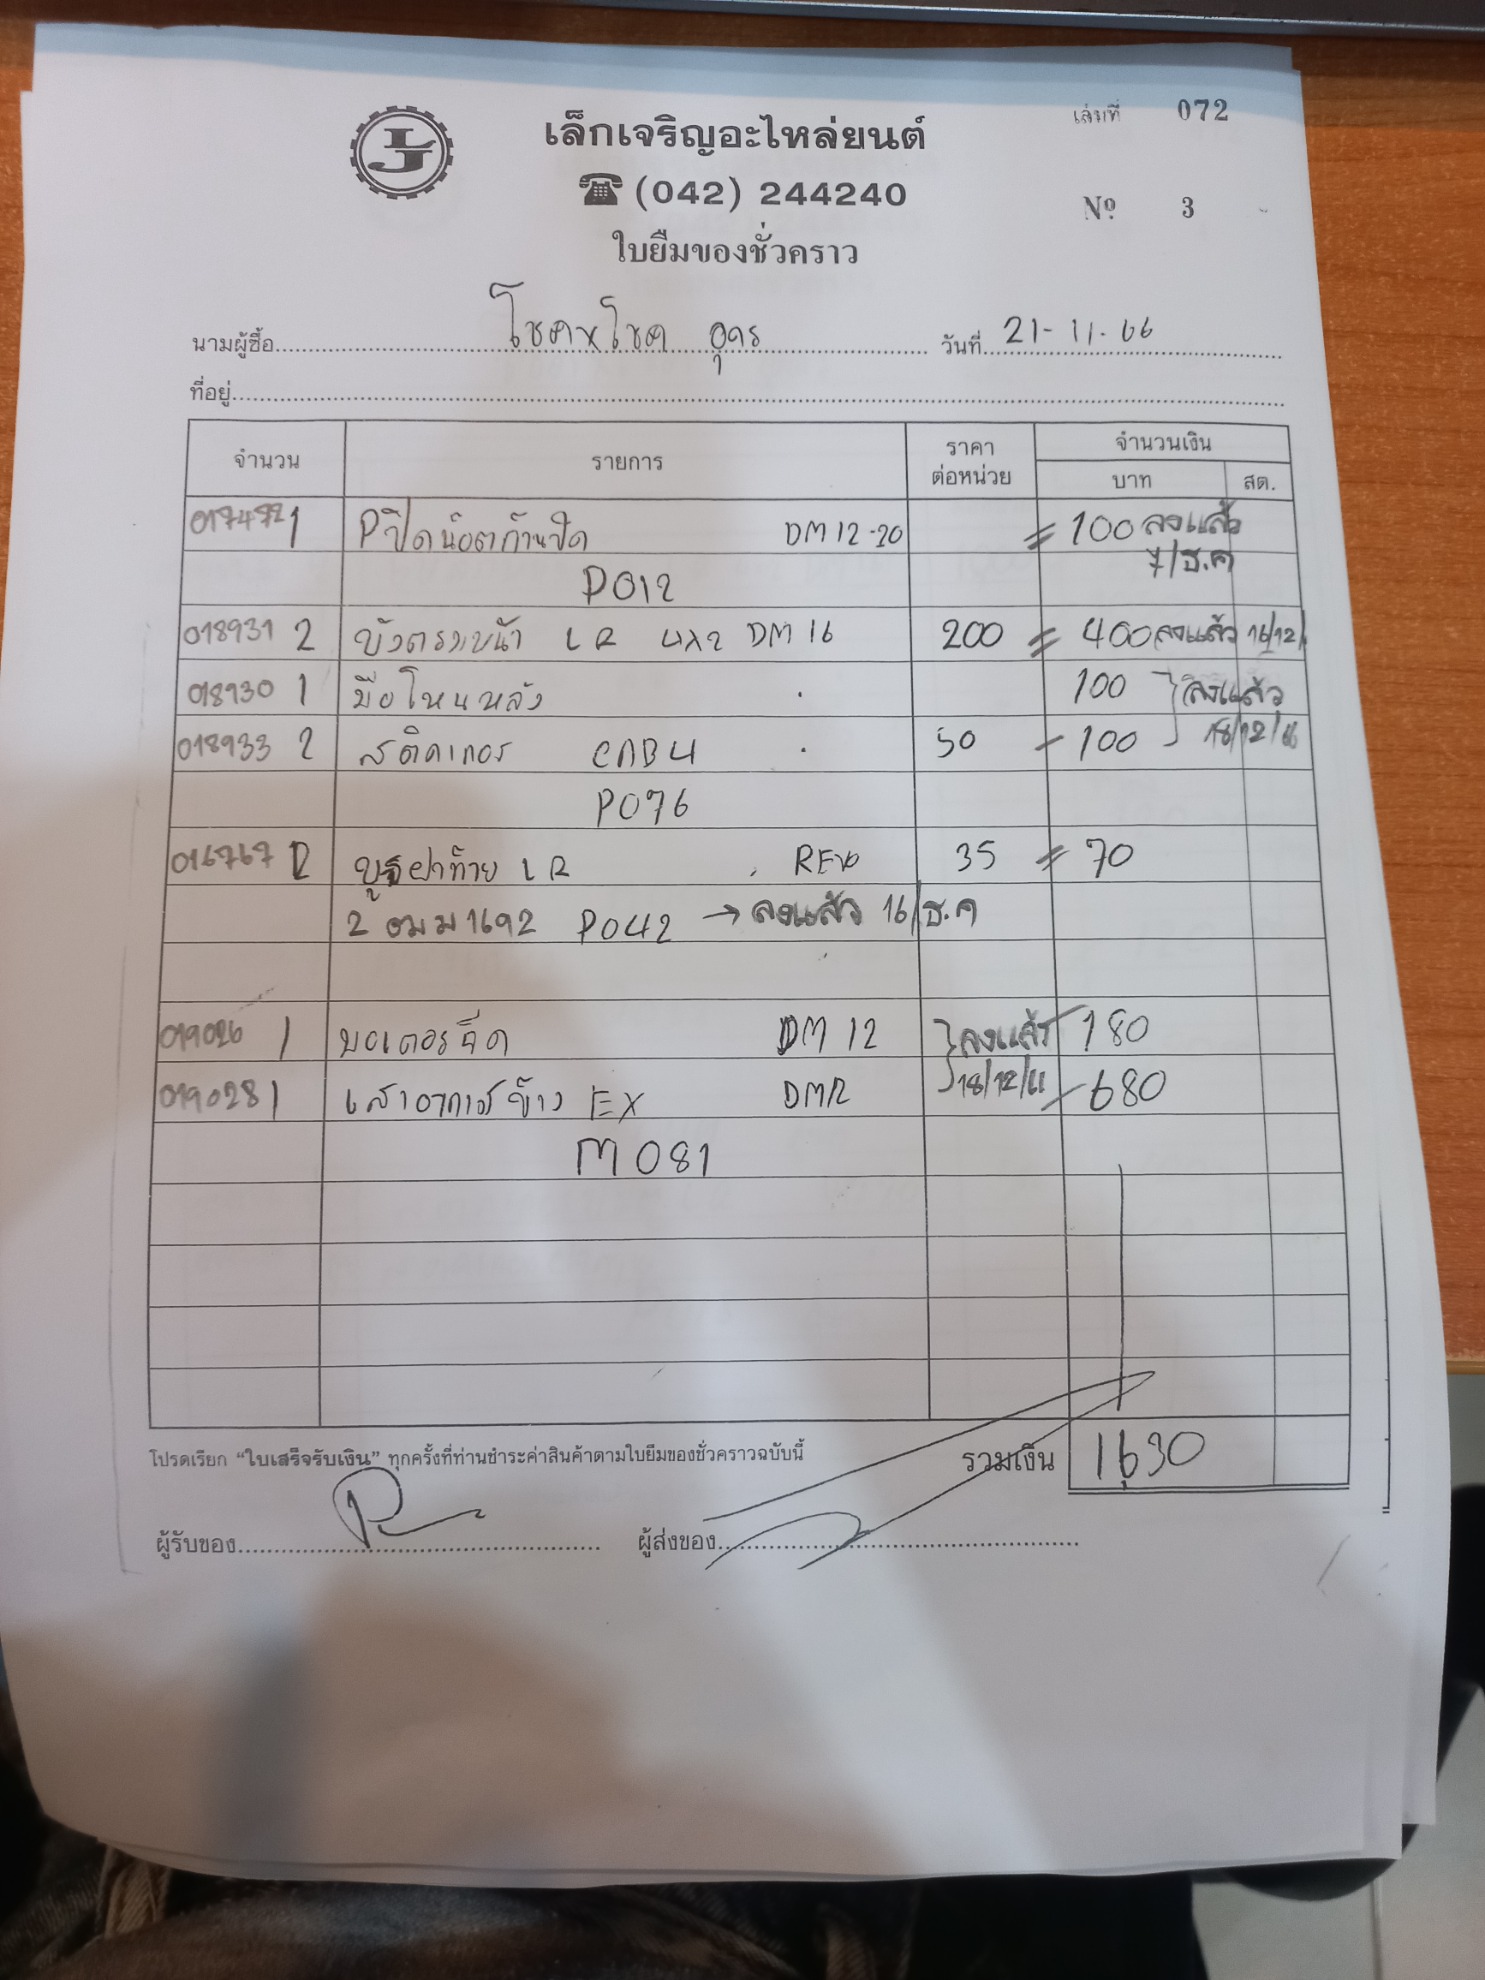 เล่มที่ 072
LJ
เล็กเจริญอะไหล่ยนต์
(042) 244240
Nº 3
ใบยืมของชั่วคราว
นามผู้ซื้อ โชคxโชค อุดร วันที่ 21-11-66
ที่อยู่
จำนวน รายการ ราคาต่อหน่วย จำนวนเงิน
บาท สต.
017472 1 Pปิดน๊อตก้านปัด DM12-20 100 ลงแล้ว
P012 7/ธ.ค
018931 2 บังตรงหน้า LR DM16 200 400 ลงแล้ว 16/12/
018930 1 มือโหนหลัง 100 ลงแล้ว
018933 2 สติคเกอร CAB4 50 100 18/12/66
P076
016767 2 ฝาท้าย LR REVO 35 70
2 1692 P042 → ลงแล้ว 16/ธ.ค
019026 1 มอเตอรฉีด DM12 ลงแล้ว 180
019028 1 เสาอากาศข้าง EX 18/12/66 680
M081
โปรดเรียก “ใบเสร็จรับเงิน” ทุกครั้งที่ท่านชำระค่าสินค้าตามใบยืมของชั่วคราวฉบับนี้ รวมเงิน 1630
ผู้รับของ ผู้ส่งของ